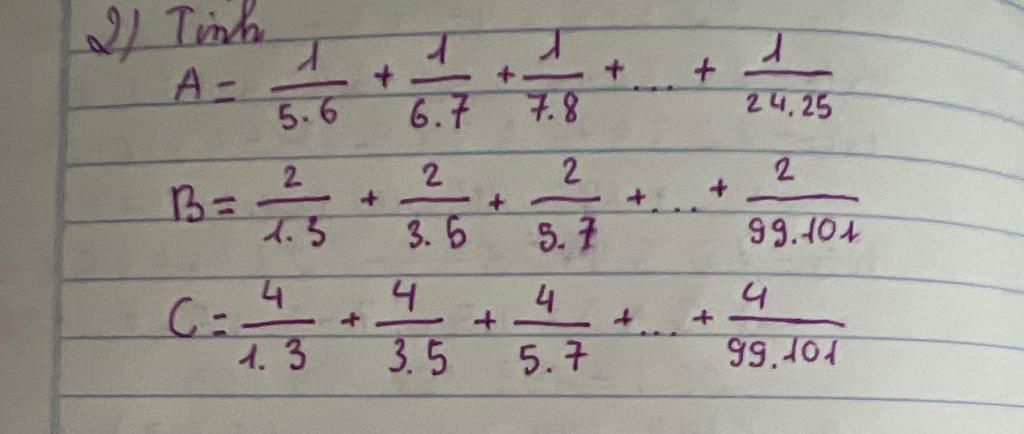 2) Tính
A = 1/5.6 + 1/6.7 + 1/7.8 + ... + 1/24.25
B = 2/1.3 + 2/3.5 + 2/5.7 + ... + 2/99.101
C = 4/1.3 + 4/3.5 + 4/5.7 + ... + 4/99.101